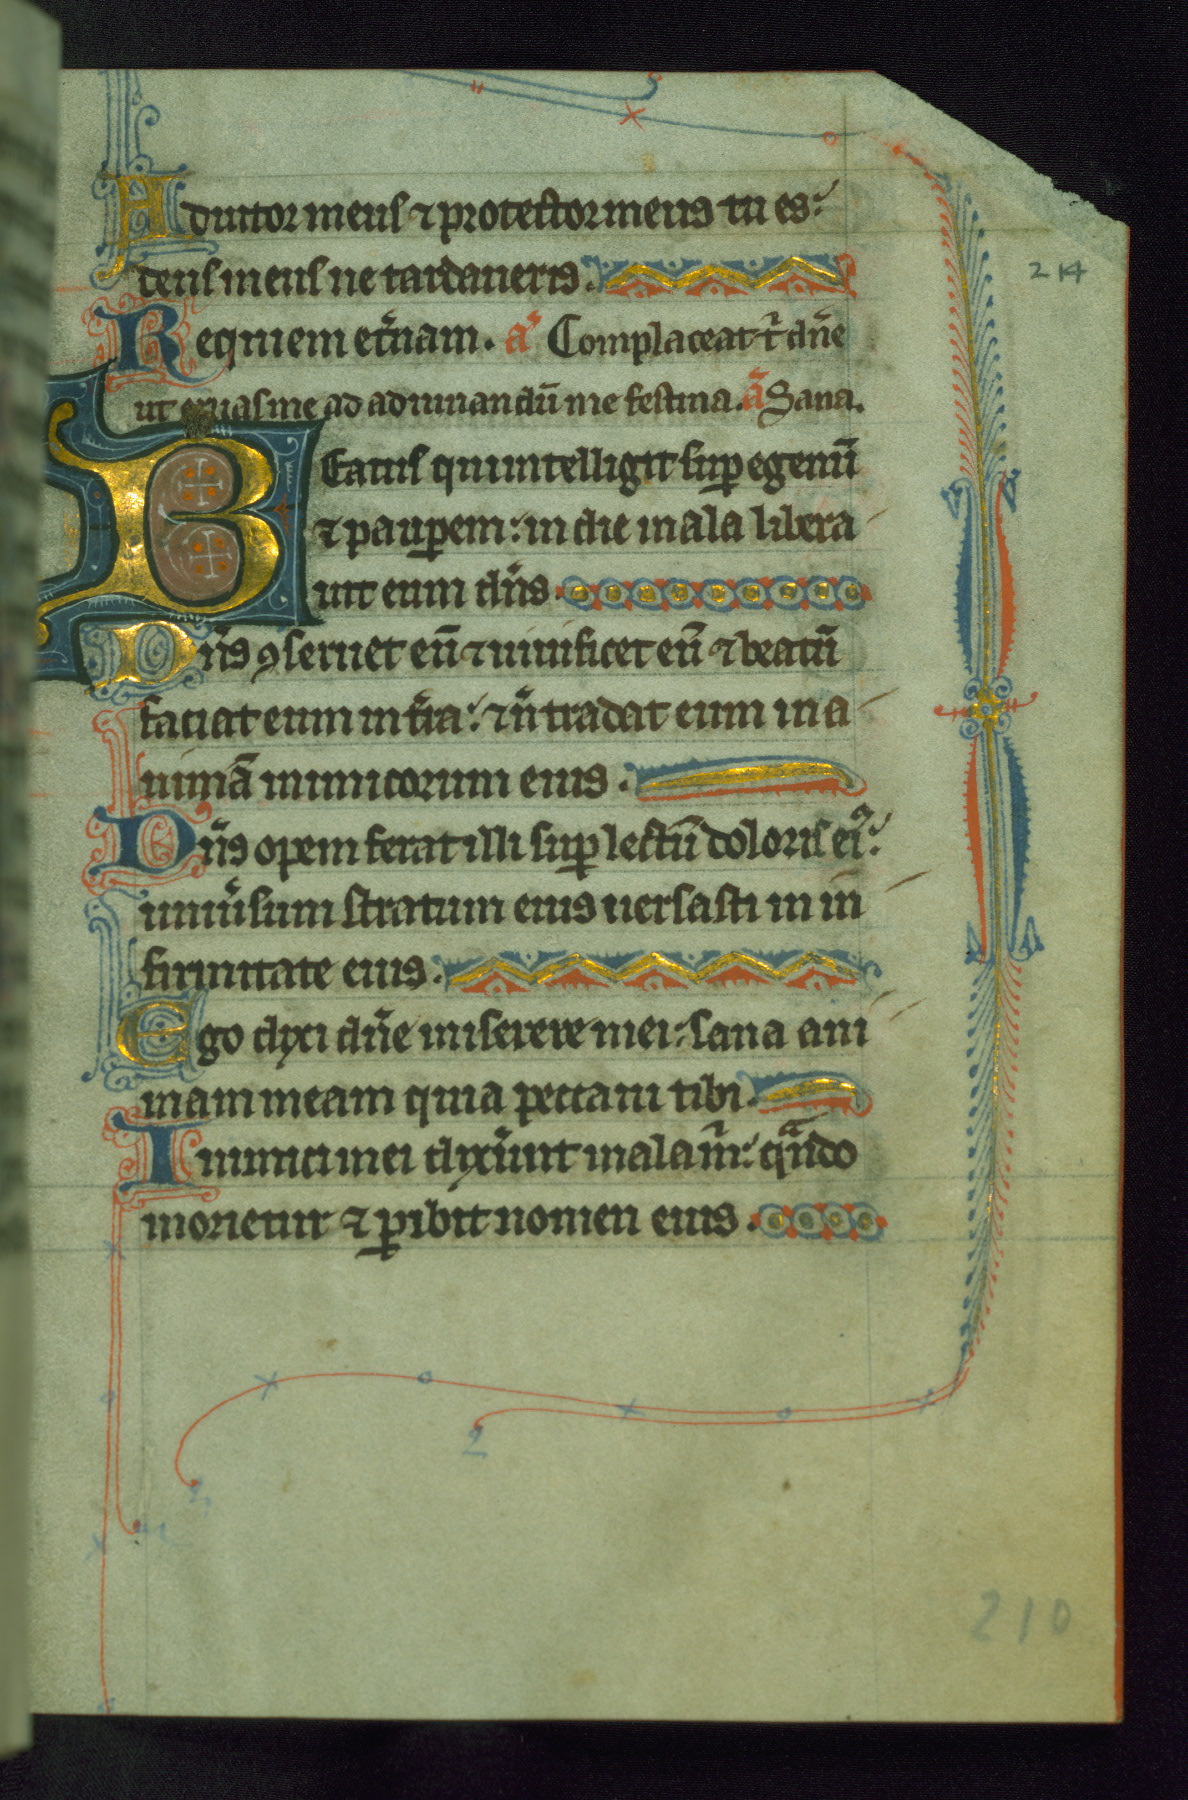 Adiutor meus ⁊ protector meus tu es:
deus meus ne tardaueris.
Requiem et̾nam. a᷎ Complaceat t̾ dn̄e
ut eruas me ad adiuuandū me festina. ā Sana.
BEatus qui intelligit sup egenū
⁊ paup̱em: in die mala libera
uit eum dn̄s.
Dn̄s ꝯseruet eū ⁊ uiuificet eū ⁊ beatū
faciat eum in t̾ra: ⁊ n̄ tradat eum in a
nimā inimicorum eius.
Dn̄s opem ferat illi sup lectū doloris ei᷒:
uniu̾sum stratum eius uersasti in in
firmitate eius.
Ego dixi dn̄e miserere mei: sana ani
mam meam quia peccaui tibi.
Inimici mei dix̾unt mala m̄: qn̄do
morietur ⁊ ꝑibit nomen eius.
214
210